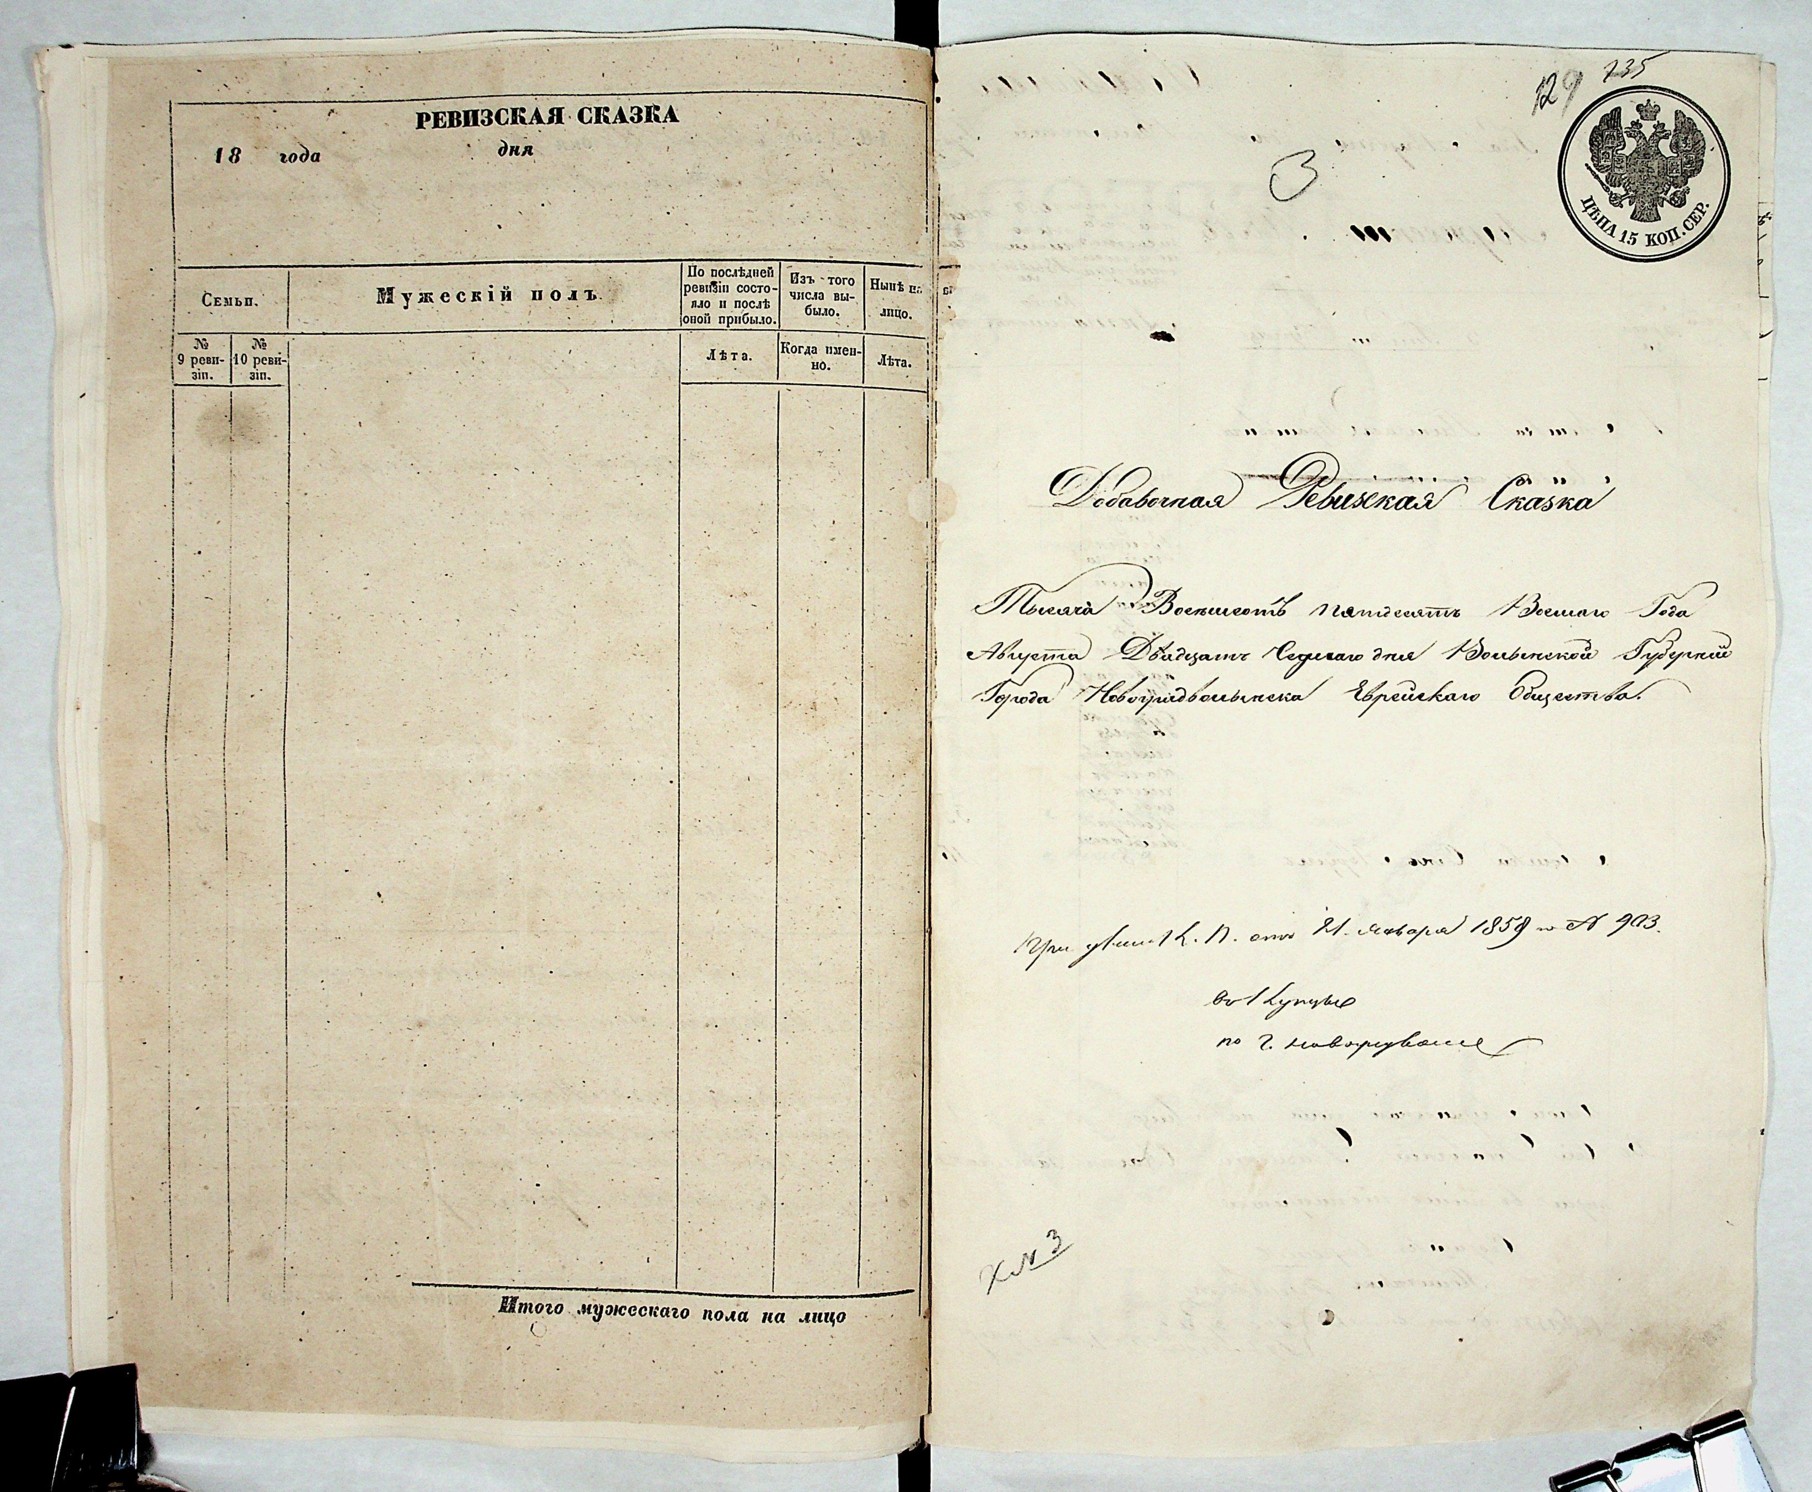 РЕВИЗСКАЯ СКАЗКА
18 года дня
Семьи.
Мужескій полъ
По послѣдней ревизіи состо-
яло и послѣ
оной прибыло.
Изъ того
числа вы-
было.
Нынѣ на
лицо.
№
9 реви-
зіи.
№
10 реви-
зіи.
Лѣта.
Когда имен-
но.
Лѣта.
Итого мужескаго пола на лицо
129 735
3
ЦѢНА 15 КОП. СЕР.
Добавочная Ревизская Сказка
Тысяча Восемьсотъ пятдесятъ Восмаго Года
Августа Двадцать Седмаго дня Волынской Губерніи
Города Новоградволынска Еврейскаго Общества.
При К. П. отъ 21 января 1859 № 903.
по г. Новоградволы
№ 3